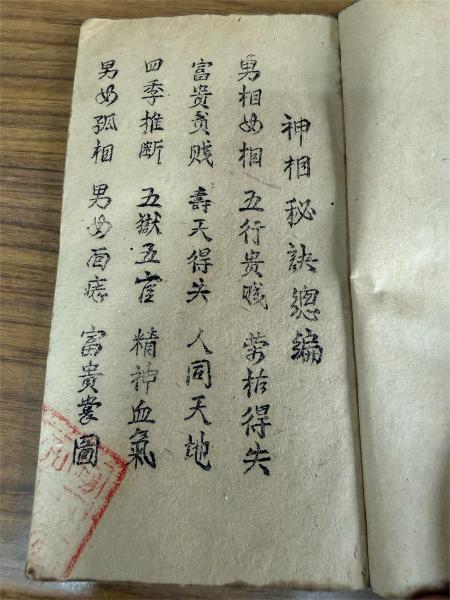 神相秘訣總編
男相女相 五行贵贱 荣枯得失
富贵贫贱 壽夭得失 人同天地
四季推断 五獄五官 精神血氣
男女孤相 男女面痣 富貴裳圖